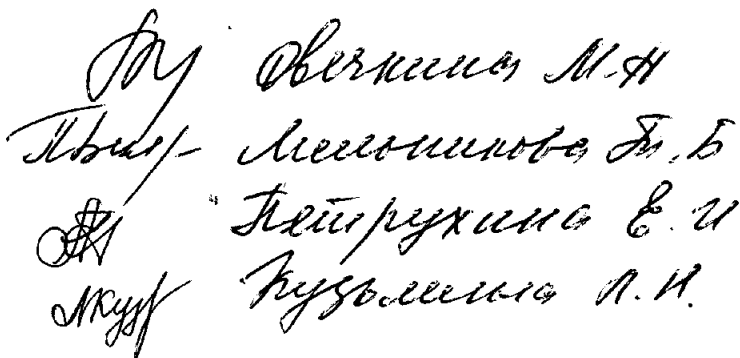 Овечкина М.Н
Мельникова Т.Б
Петрухина Е.И
Кузьмина Л.Н.